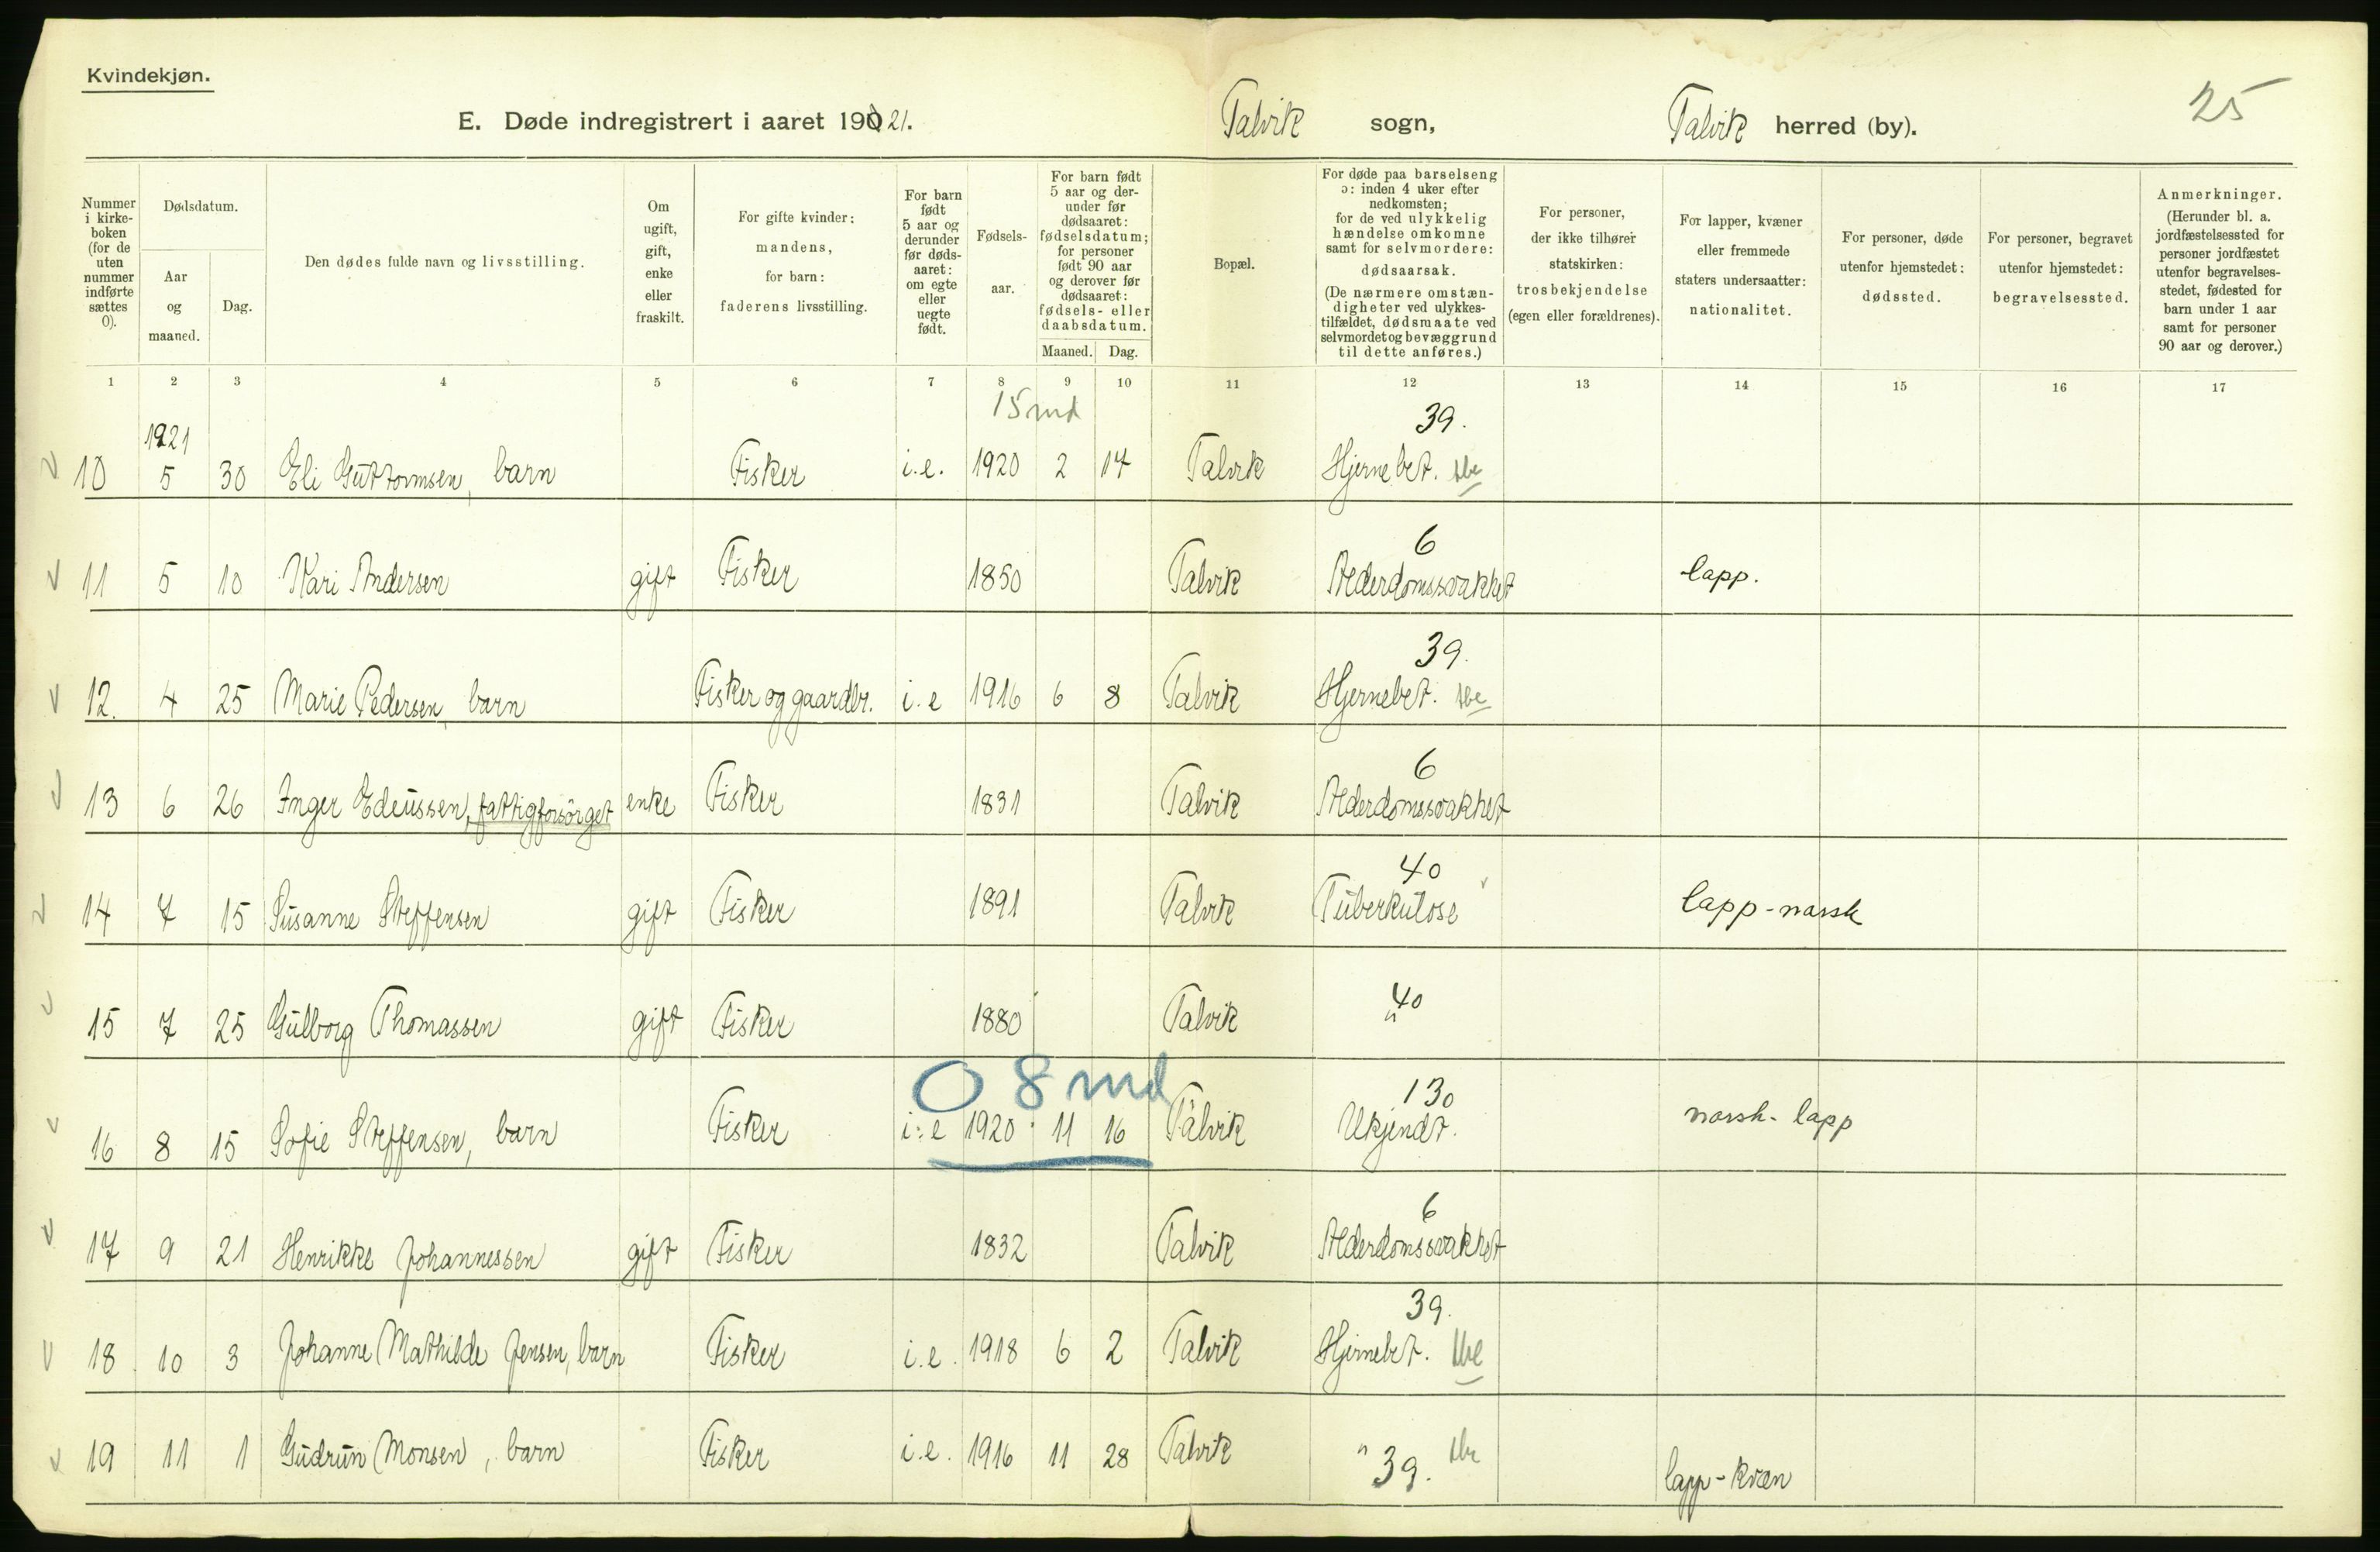 Kvindekjøn.
E. Døde indregistrert i aaret 190 21. Talvik sogn, Talvik herred (by). 25
Nummer i kirke- boken (for de uten nummer indførte sættes 0).
Dødsdatum.
Aar og maaned.
Dag.
Den dødes fulde navn og livsstilling.
Om ugift, gift, enke eller fraskilt.
For gifte kvinder: mandens, for barn: faderens livsstilling.
For barn født 5 aar og derunder før døds- aaret: om egte eller uegte født.
Fødsels- aar.
For barn født 5 aar og der- under før dødsaaret: fødselsdatum; for personer født 90 aar og derover før dødsaaret: fødsels- eller daabsdatum.
Maaned. Dag.
Bopæl.
For døde paa barselseng ɔ: inden 4 uker efter nedkomsten; for de ved ulykkelig hændelse omkomne samt for selvmordere: dødsaarsak. (De nærmere omstæn- digheter ved ulykkes- tilfældet, dødsmaate ved selvmordet og bevæggrund til dette anføres.)
For personer, der ikke tilhører statskirken: trosbekjendelse (egen eller forældrenes).
For lapper, kvæner eller fremmede staters undersaatter: nationalitet.
For personer, døde utenfor hjemstedet: dødssted.
For personer, begravet utenfor hjemstedet: begravelsessted.
Anmerkninger. (Herunder bl. a. jordfæstelsessted for personer jordfæstet utenfor begravelses- stedet, fødested for barn under 1 aar samt for personer 90 aar og derover.)
1 2 3 4 5 6 7 8 9 10 11 12 13 14 15 16 17
1921 15 md 39.
10 5 30 Eli Guttormsen, barn Fisker i.e. 1920 2 17 Talvik Hjernebet. tbc
6
11 5 10 Kari Andersen gift Fisker 1850 Talvik Alderdomssvakhet lapp.
39.
12. 4 25 Marie Pedersen, barn Fisker og gaardbr. i.e 1916 6 8 Talvik Hjernebet. tbc
6
13 6 26 Inger Edeussen, fattigforsørget enke Fisker 1831 Talvik Alderdomssvakhet
40
14 7 15 Susanne Steffensen gift Fisker 1891 Talvik Tuberkulose lapp-norsk
40
15 7 25 Gulborg Thomassen gift Fisker 1880 Talvik "
0 8 md 130
16 8 15 Sofie Steffensen, barn Fisker i.e 1920 11 16 Talvik Ukjendt. norsk-lapp
6
17 9 21 Henrikke Johannessen gift Fisker 1832 Talvik Alderdomssvakhet
39.
18 10 3 Johanne Mathilde Jensen, barn Fisker i.e. 1918 6 2 Talvik Hjernebet. tbc
19 11 1 Gudrun Monsen, barn Fisker i.e. 1916 11 28 Talvik " 39. tbc lapp-kvæn